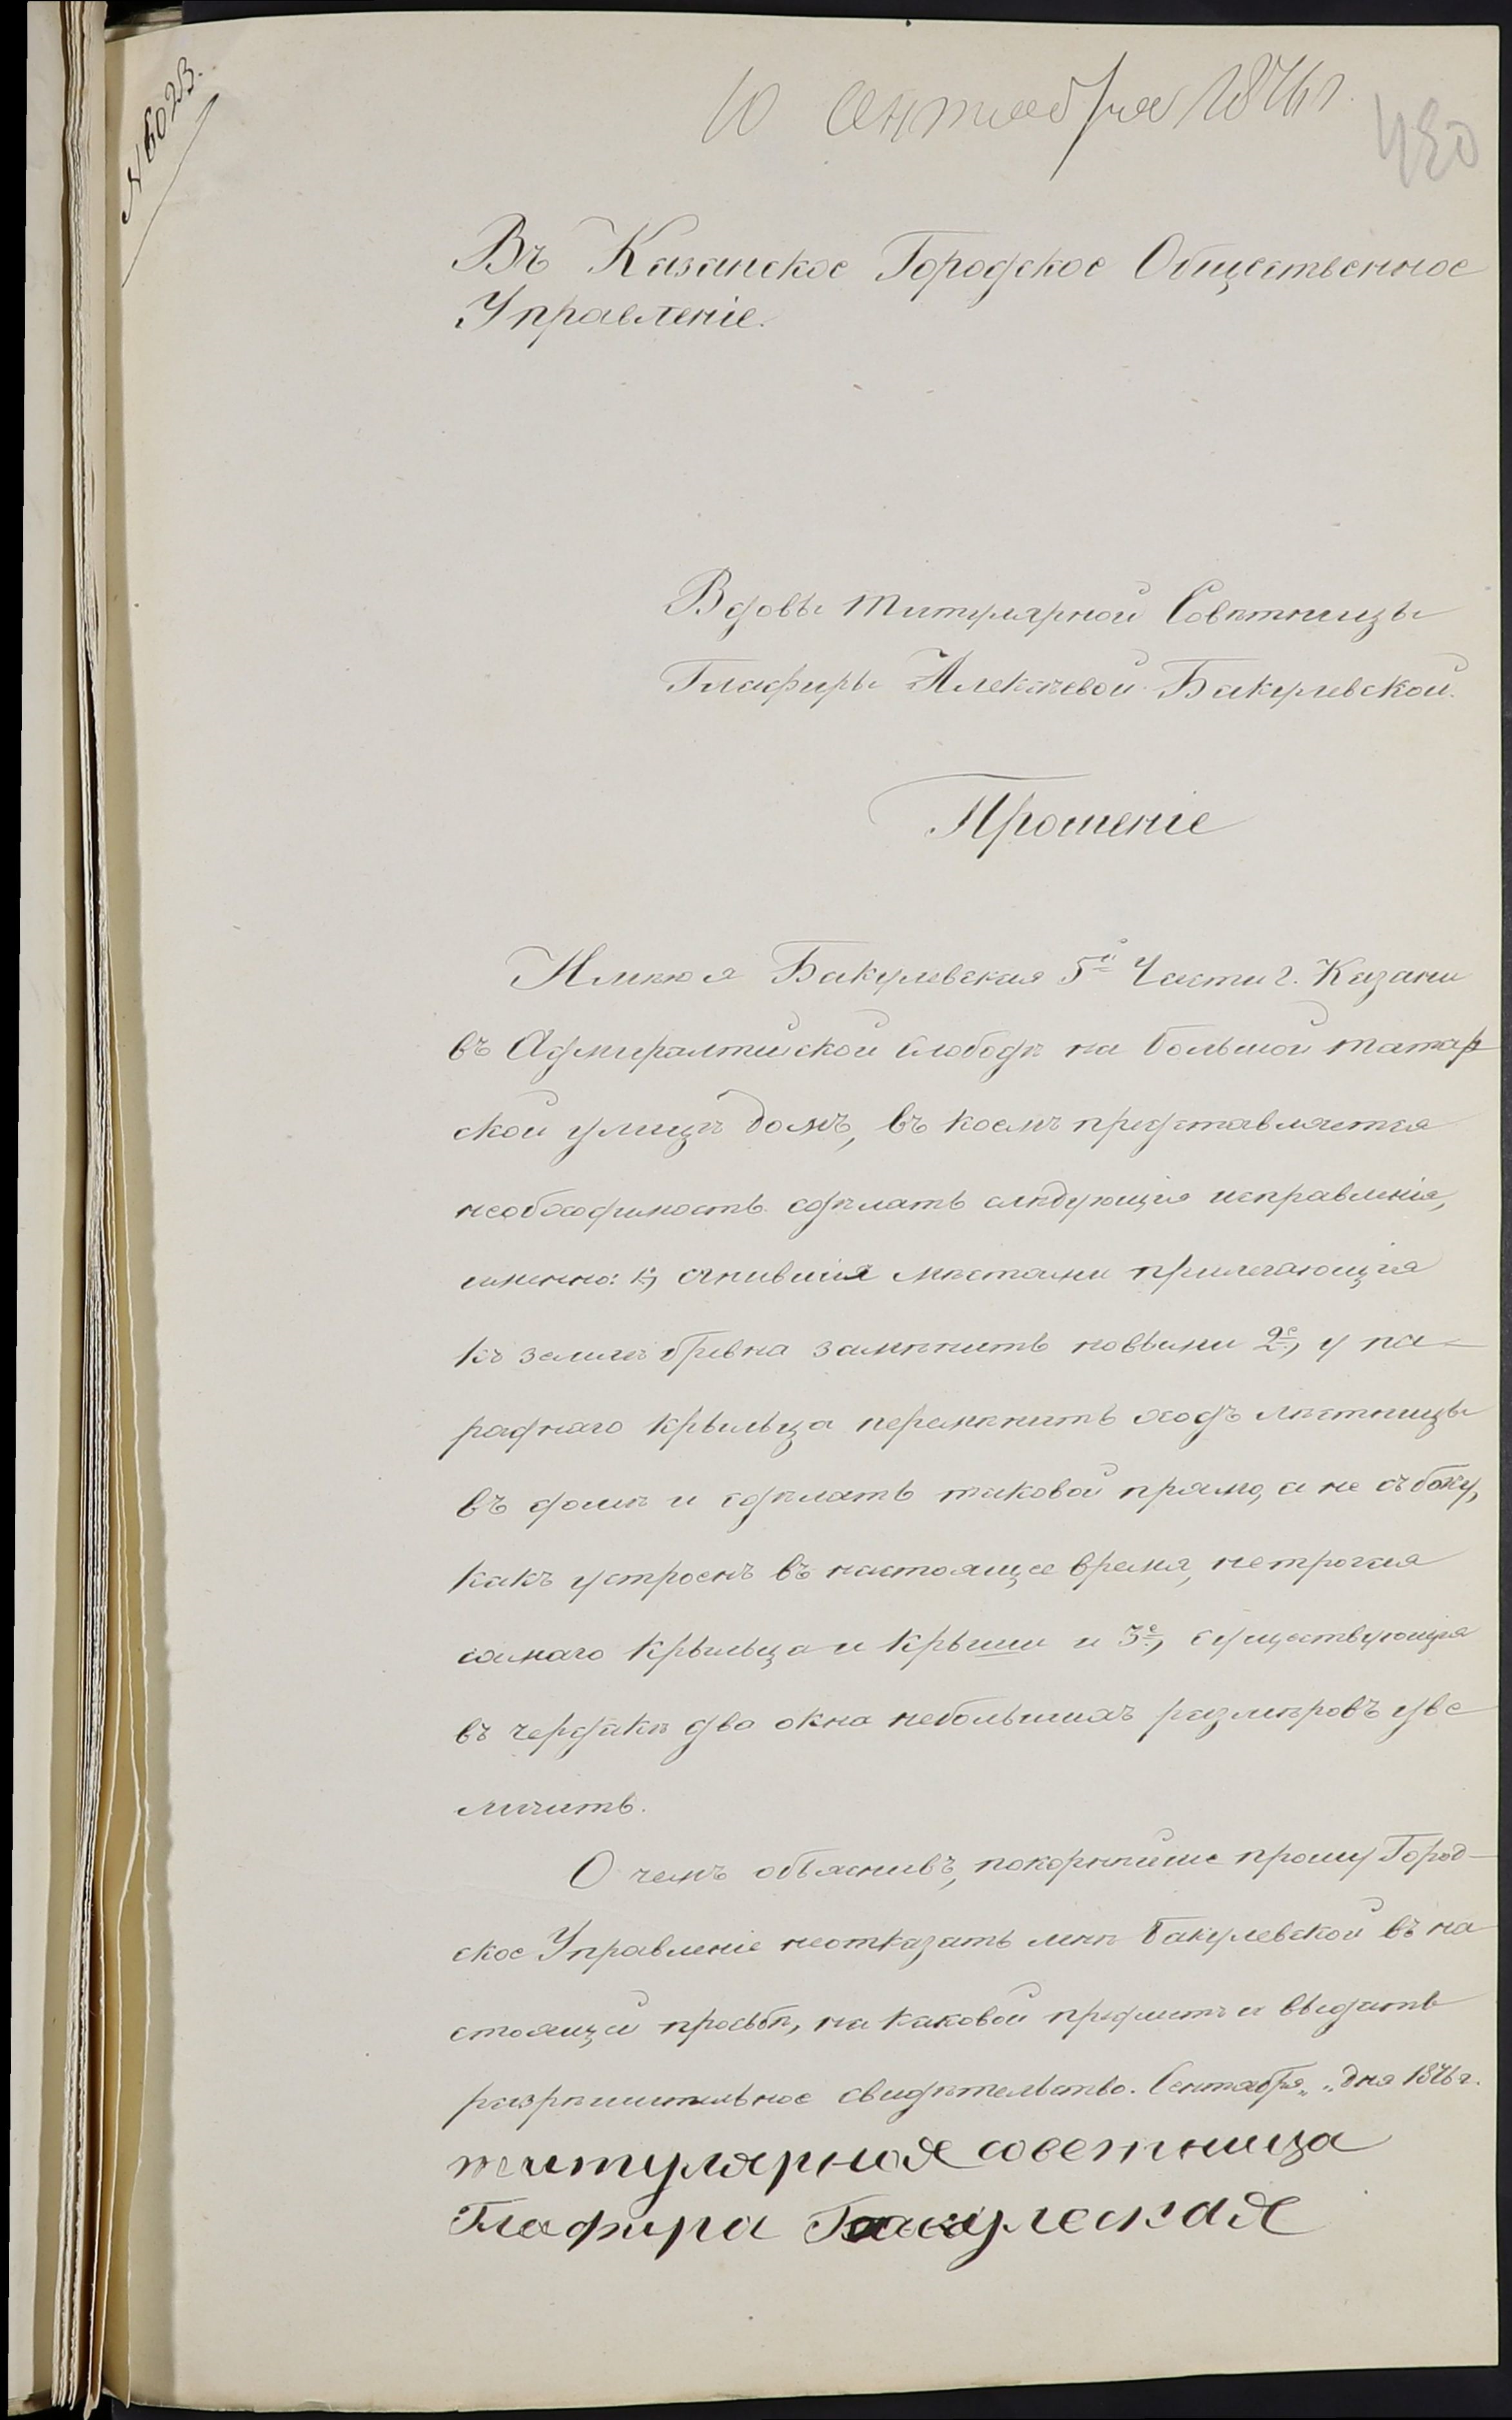 N 6023.
10 Сентября 1876 г.
480
Въ Казанское Городское Общественное
Управленіе.
Вдовы Титулярной Совѣтницы
Глафиры Алексѣевой Бакулевской.
Прошеніе
Имѣю я Бакулевская 5й Части г. Казани
въ Адмиралтейской слободѣ на большой татар
ской улицѣ домъ, въ коемъ представляется
необходимость сдѣлать слѣдующія исправленія,
именно: 1е, сгнившія мѣстами прилегающія
къ землѣ бревна замѣнить новыми 2е, у па-
раднаго крыльца перемѣнить ходъ лѣстницы
въ домъ и сдѣлать таковой прямо, а не съ боку,
какъ устроенъ въ настоящее время, нетрогая
самаго крыльца и крыши и 3е, существующія
въ чердакѣ два окна небольшихъ размѣровъ уве
личить.
О чемъ объяснивъ, покорнѣйше прошу Город-
ское Управленіе неотказать мнѣ Бакулевской въ на
стоящей просьбѣ, на каковой предметъ и выдать
разрѣшительное свидѣтельство. Сентября „ „ дня 1876 г.
титулярная советница
Глафира Бакулеская